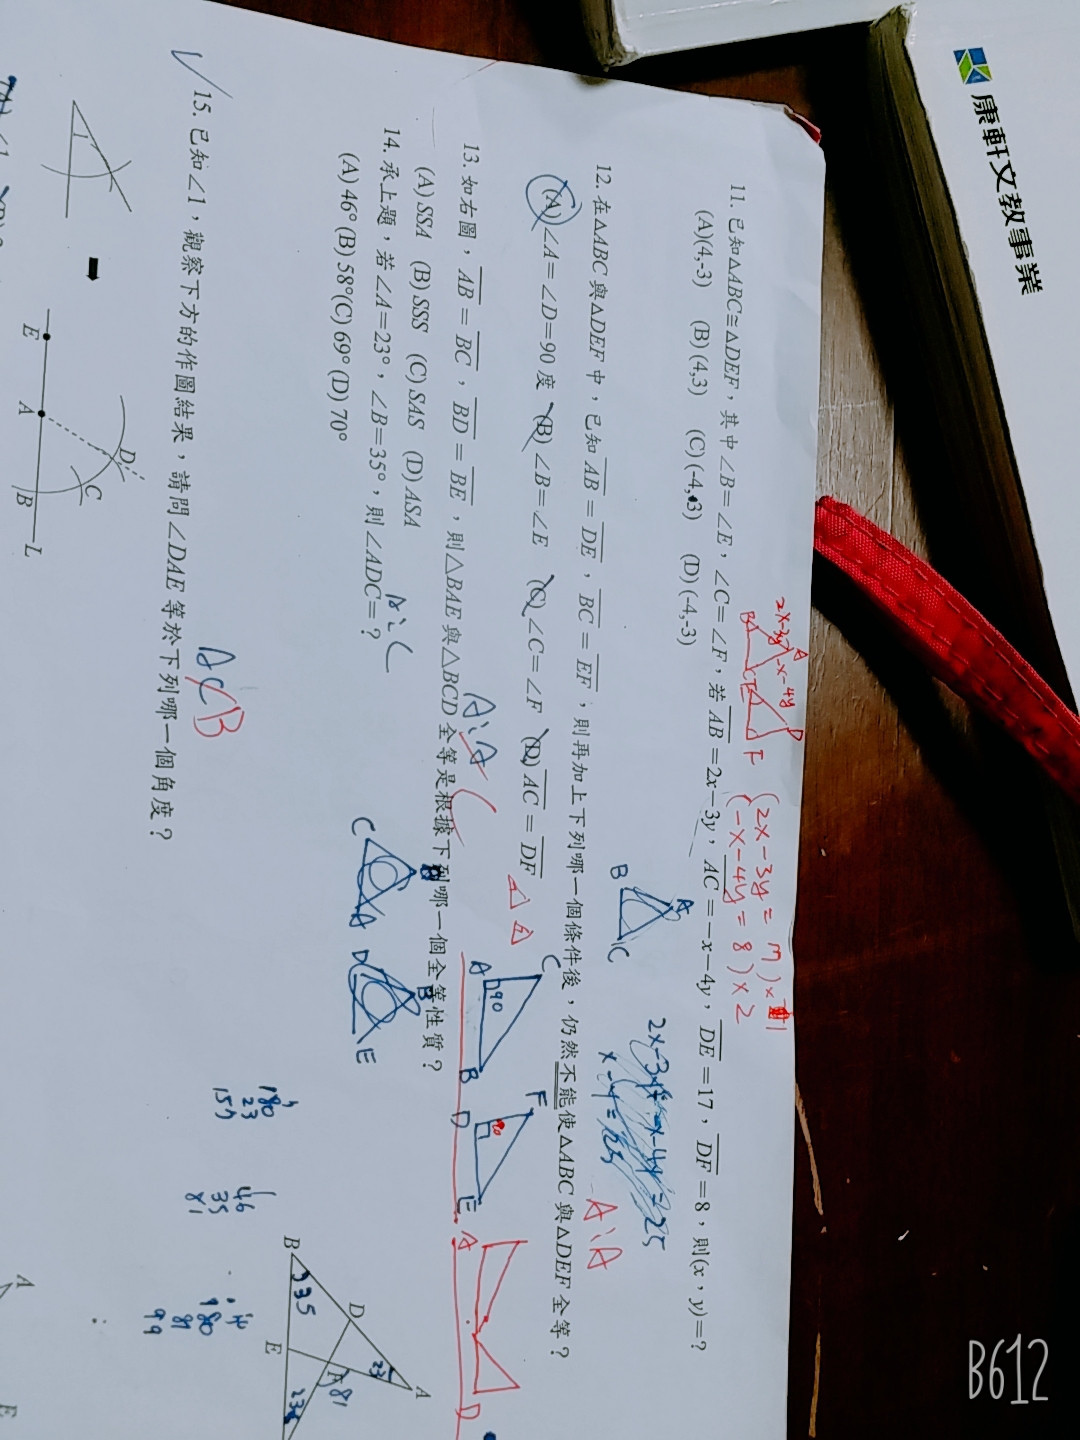 康軒文教事業
11. 已知△ABC≅△DEF，其中∠B=∠E，∠C=∠F，若AB=2x−3y，AC=−x−4y，DE=17，DF=8，則(x，y)=？
(A)(4,-3) (B)(4,3) (C)(-4,3) (D)(-4,-3)
2x-3y
-x-4y
B
A
D
F
2x-3y=
-x-4y=8)×2
B
A
C
12. 在△ABC與△DEF中，已知AB=DE，BC=EF，則再加上下列哪一個條件後，仍然不能使△ABC與△DEF全等？
(A)∠A=∠D=90度 (B)∠B=∠E (C)∠C=∠F (D)AC=DF
A
C
90
B
D
F
90
E
A
D
13. 如右圖，AB=BC，BD=BE，則△BAE與△BCD全等是根據下列哪一個全等性質？
(A)SSA (B)SSS (C)SAS (D)ASA
14. 承上題，若∠A=23°，∠B=35°，則∠ADC=？
(A)46° (B)58° (C)69° (D)70°
C
A
D
B
E
180
23
157
46
35
81
180
81
99
B
35
D
E
F
81
23
A
23
15. 已知∠1，觀察下方的作圖結果，請問∠DAE等於下列哪一個角度？
1
E
A
B
L
D
C
A
E
B612